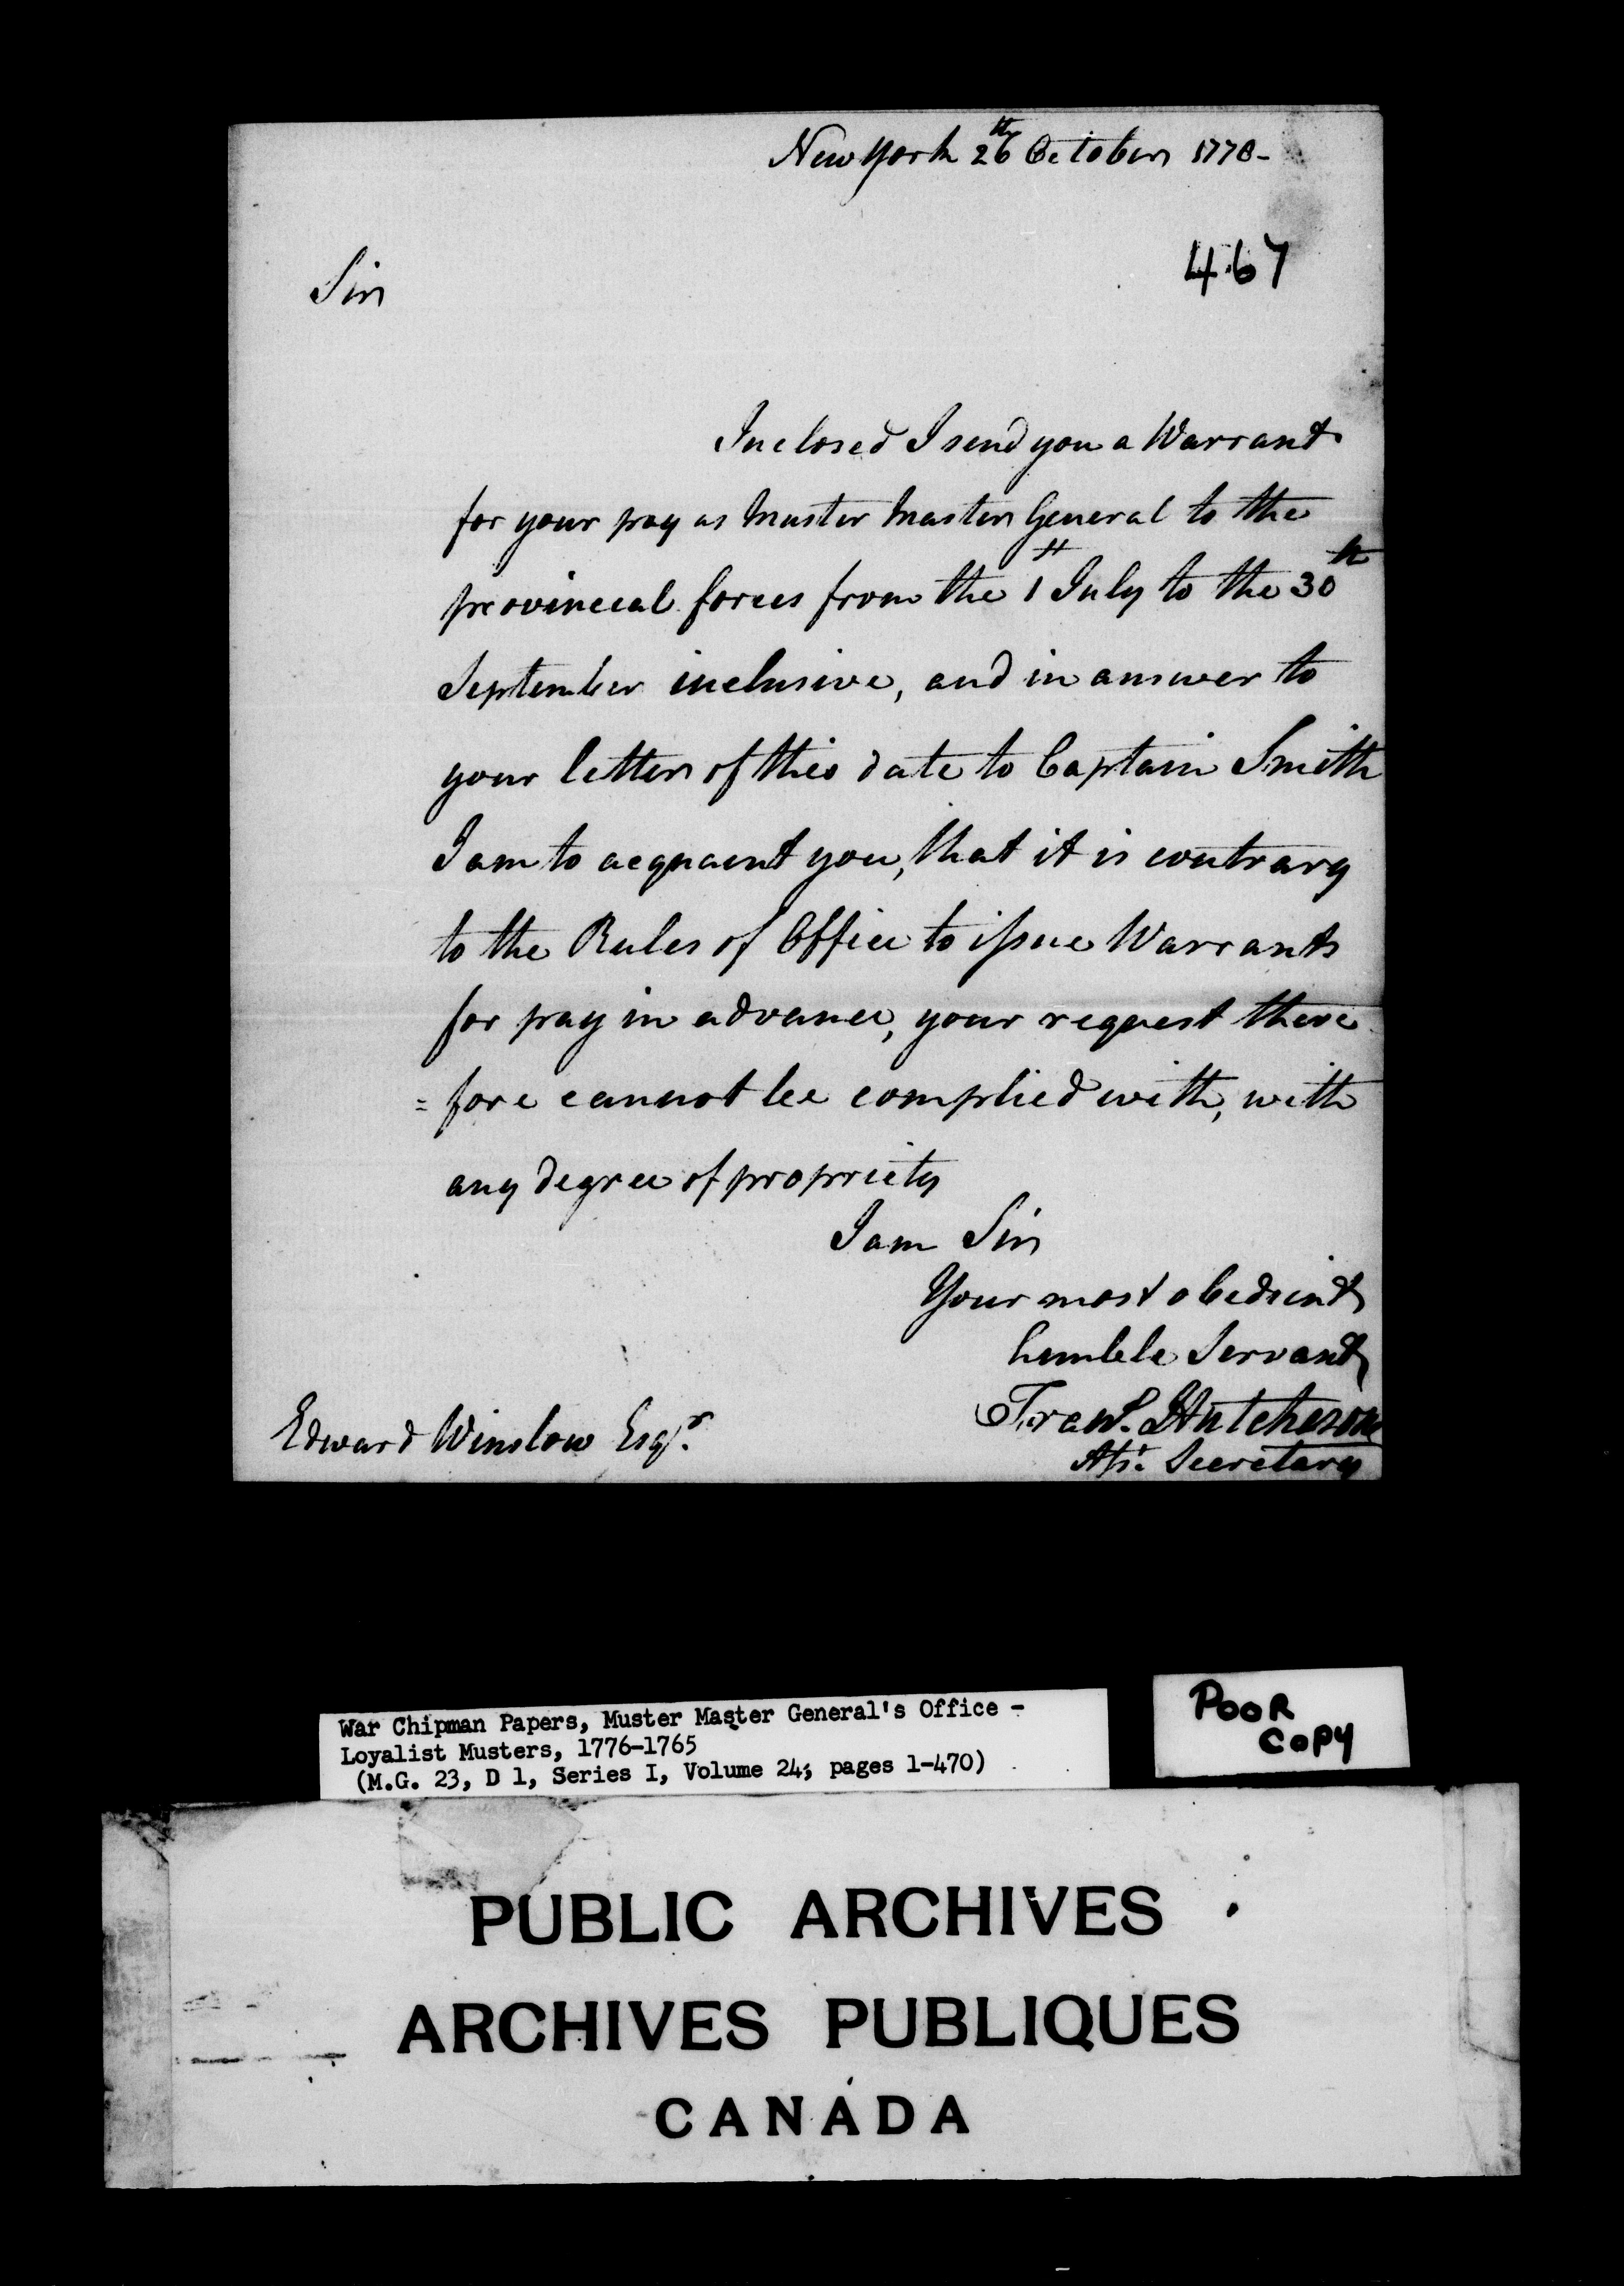 New York 26th October 1778-
467
Sir
Inclosed I send you a Warrant
for your pay as Muster Master General to the
provincial forces from the 1st July to the 30th
September inclusive, and in answer to
your letter of this date to Captain Smith
I am to acquaint you, that it is contrary
to the Rules of Office to issue Warrants
for pay in advance, your request there
=fore cannot be complied with, with
any degree of propriety
I am Sir
Your most obedient
humble Servant
Frans. Hutcheson
Asst. Secretary
Edward Winslow Esqr.
War Chipman Papers, Muster Master General's Office -
Loyalist Musters, 1776-1765
(M.G. 23, D 1, Series I, Volume 24; pages 1-470)
POOR
COPY
PUBLIC ARCHIVES
ARCHIVES PUBLIQUES
CANADA